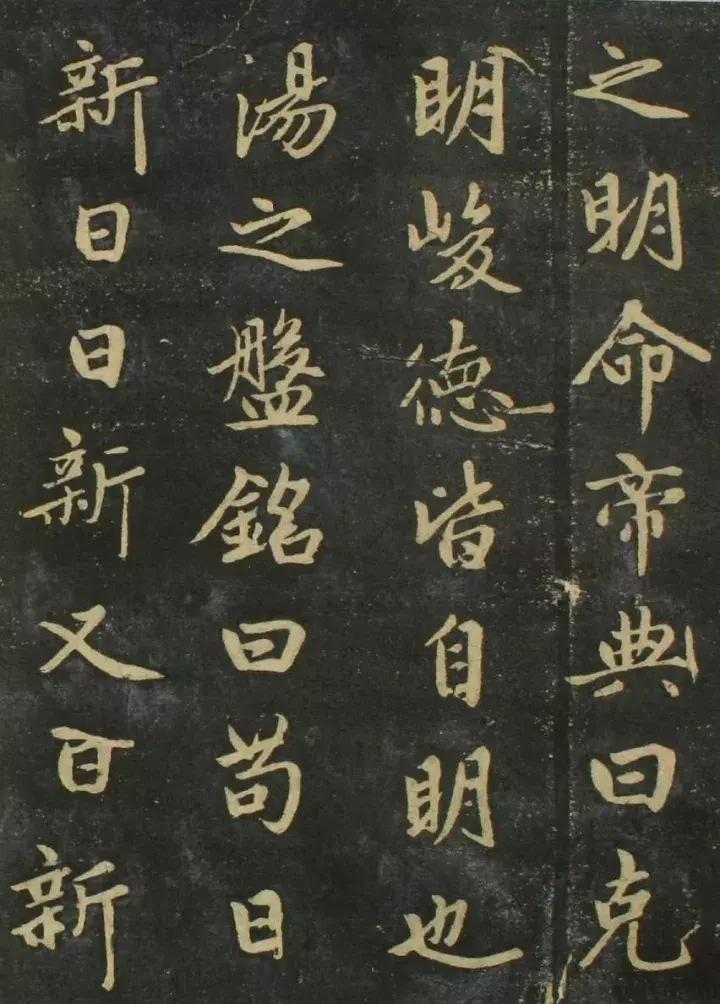 之明命帝典曰克
明峻德皆自明也
湯之盤銘曰茍日
新日日新又日新